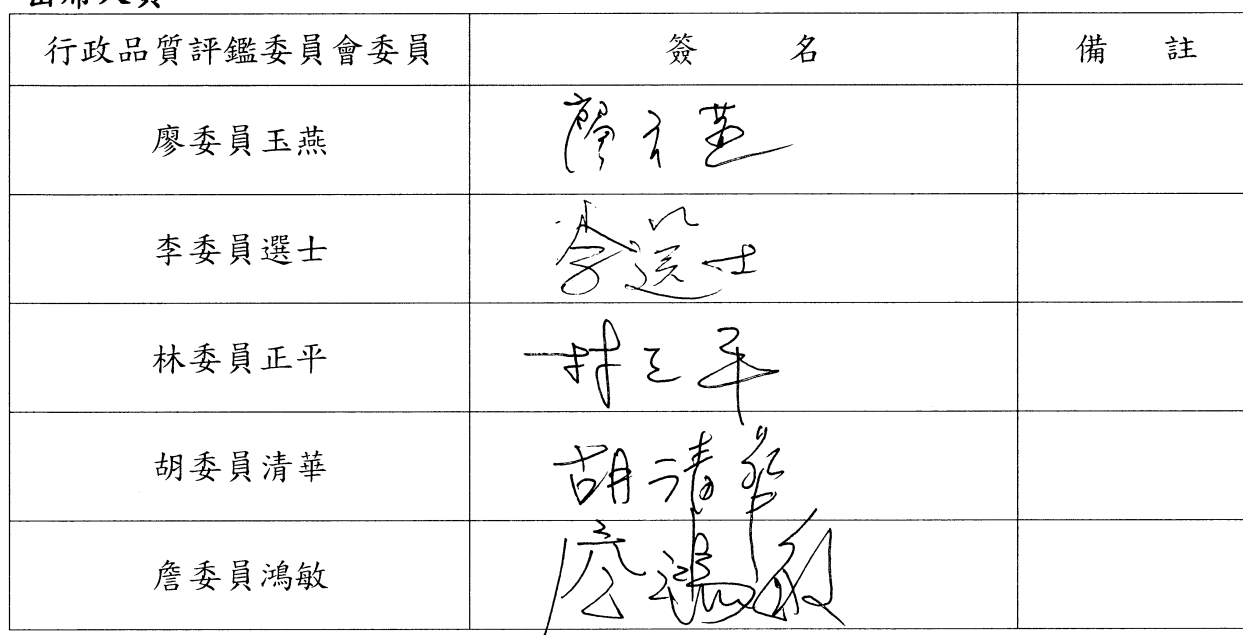 出席人員
行政品質評鑑委員會委員 簽 名 備 註
廖委員玉燕 廖玉燕
李委員選士 李選士
林委員正平 林正平
胡委員清華 胡清華
詹委員鴻敏 詹鴻敏